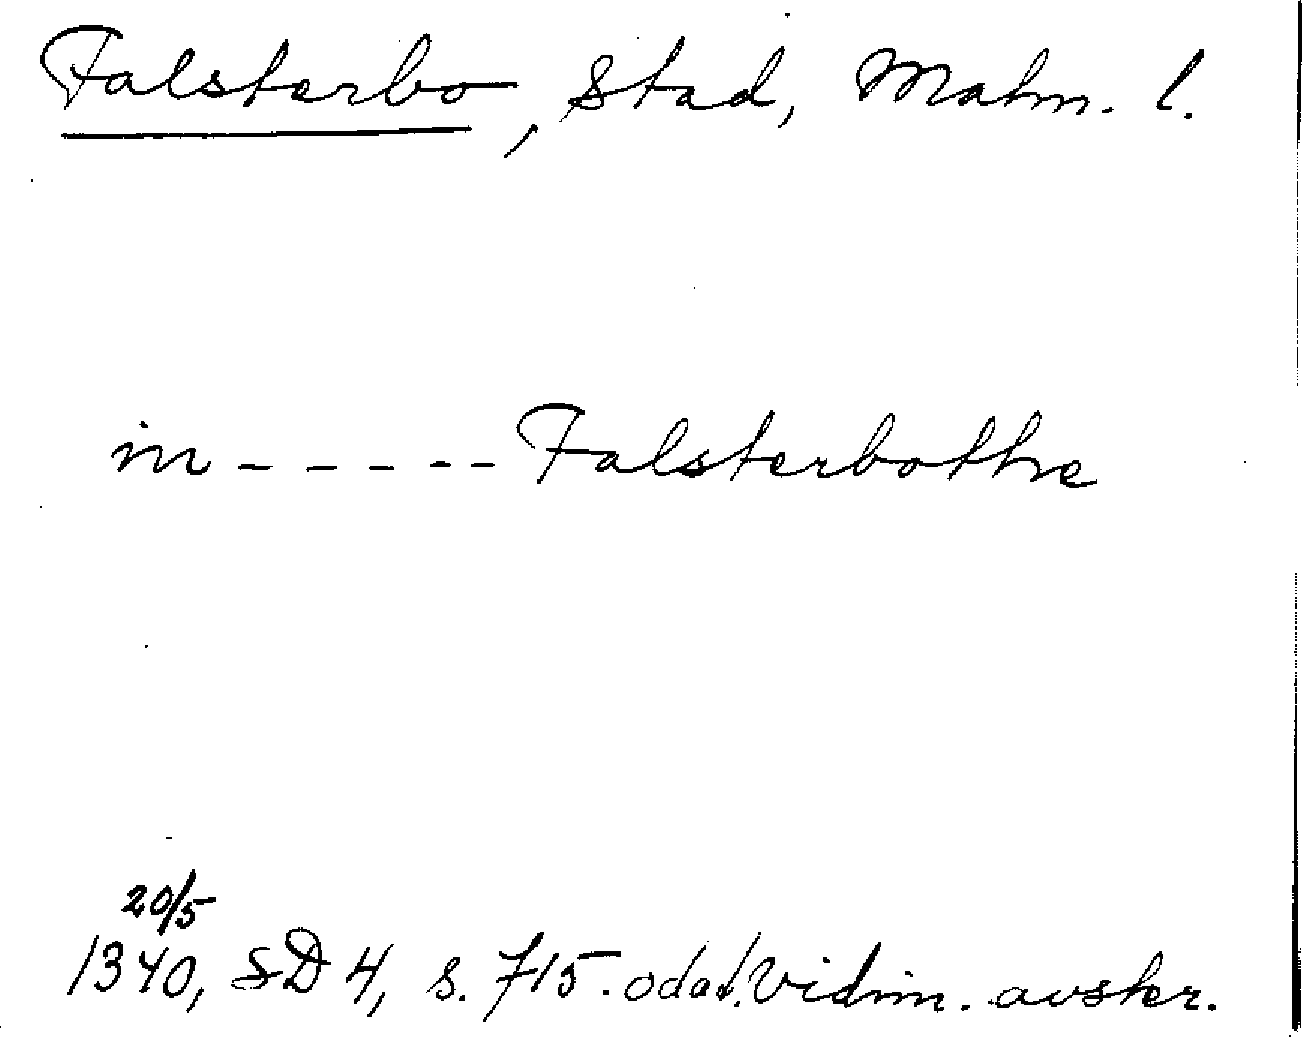 Falsterbo, Stad, Malm. l.
in - - - - - Falsterbothe
20/5
1340, SD 4, s. 715. odat. Vidim. avskr.